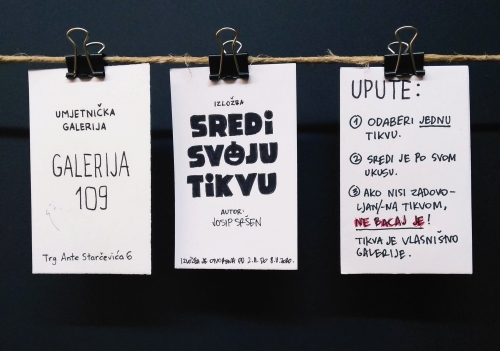 UMJETNIČKA
GALERIJA
GALERIJA
109
Trg Ante Starčevića 6
IZLOŽBA
SREDi
SVOJU
TiKVU
AUTOR:
JOSIP SRŠEN
IZLOŽBA JE OTVORENA OD 2.11. DO 8.11.2020.
UPUTE:
① ODABERI JEDNU
TIKVU.
② SREDI JE PO SVOM
UKUSU.
③ AKO NISI ZADOVO-
LJAN/-NA TIKVOM,
NE BACAJ JE!
TIKVA JE VLASNIŠTVO
GALERIJE.